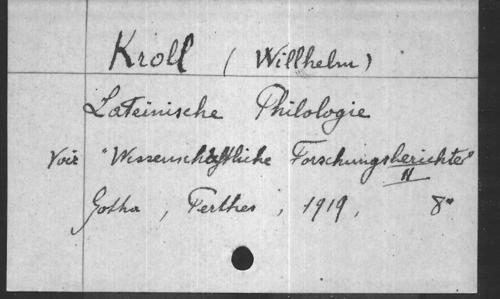 Kroll (Willhelm)
Lateinische Philologie
Voir "Wissenschaftliche Forschungsberichte"
II
Gotha, Perthes, 1919, 8°